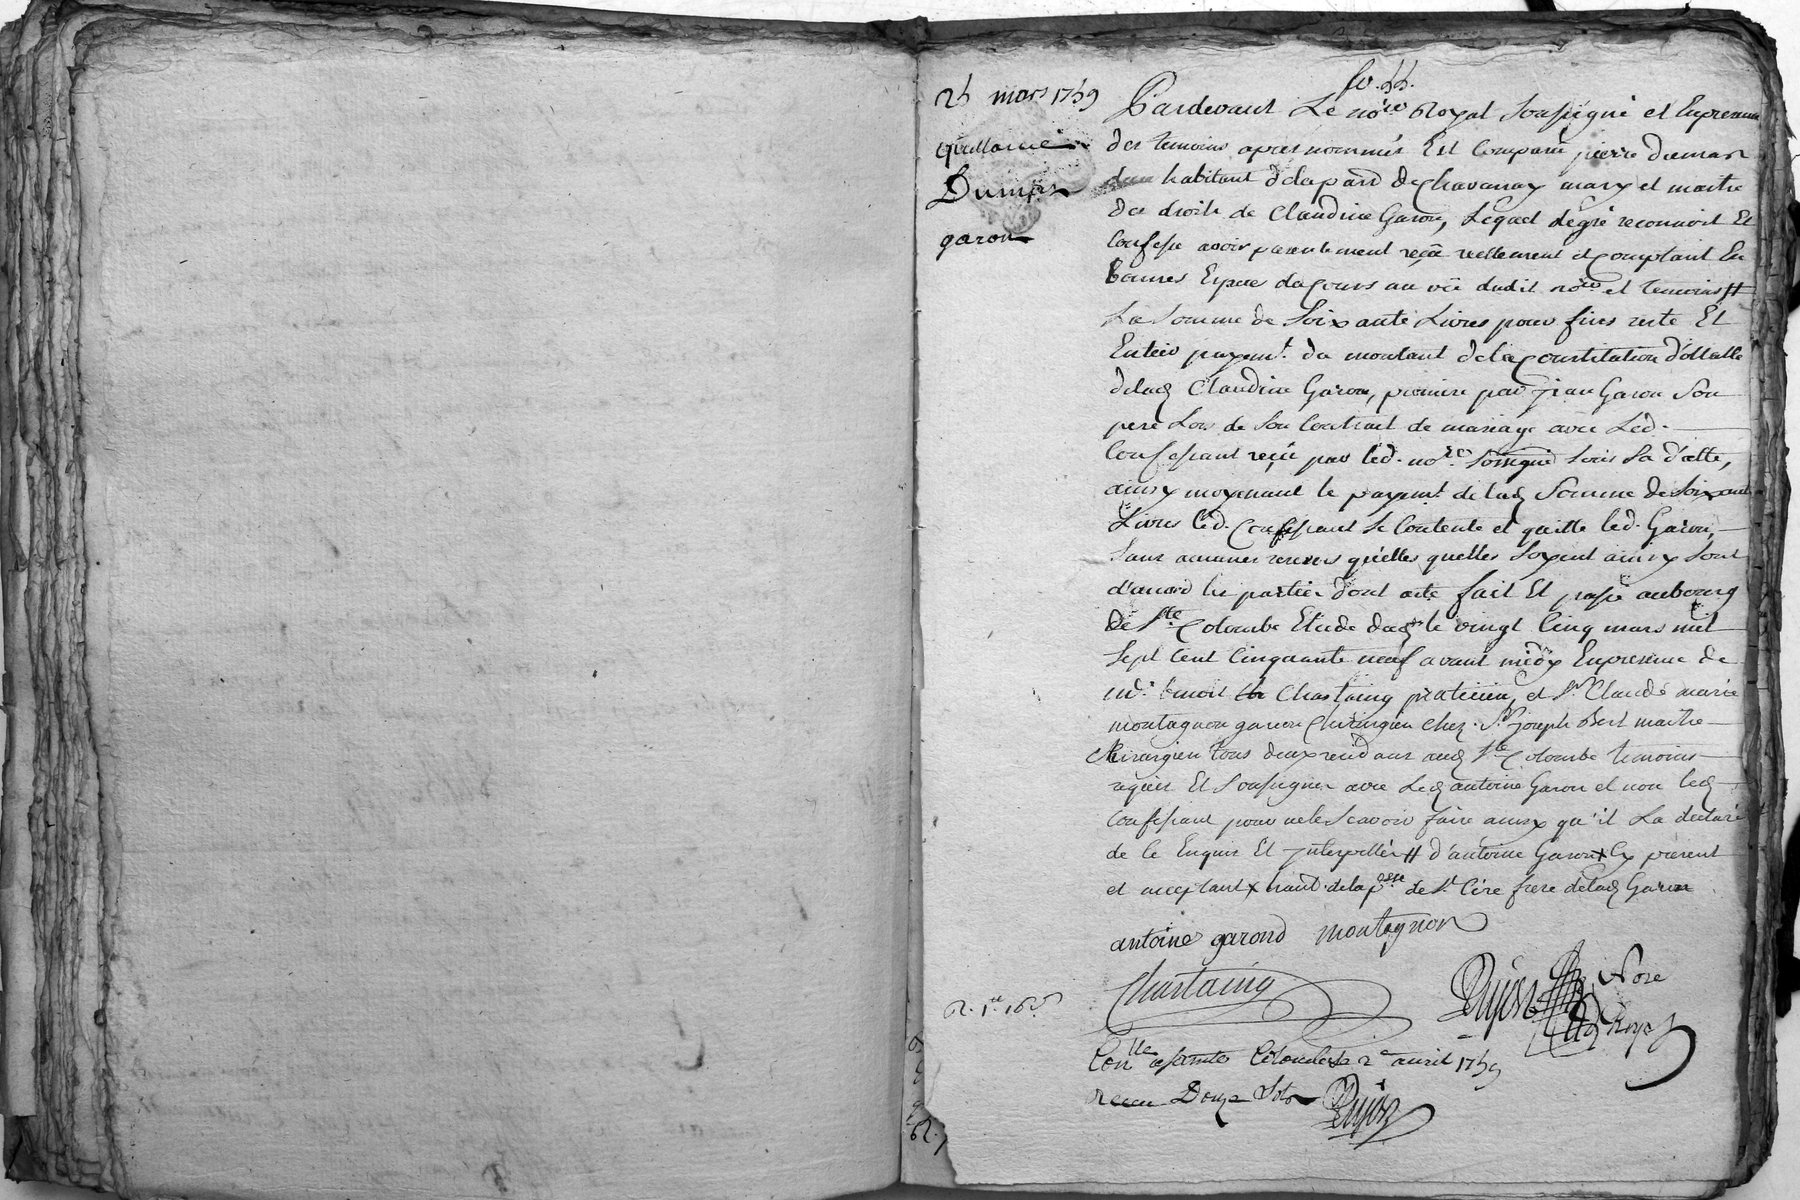 fo. 55.
25 mars 1759
quittance
Dumas
garon
Pardevant Le no.re Royal Soussigné et Enpresence
des temoins apres nommés Est Comparu pierre dumas
habitant de la parr. de Chavanay mary et maitre
des droits de Claudine Garon, Lequel degré reconnoit Et
Confesse avoir presentement reçu reellement et Comptant En
bonnes Espece de Cours au vû dudit no.re et temoins #
La Somme de Soixante Livres pour fins reste Et
Entier payemt. du montant de la Constitution dottalle
de lad. Claudine Garon, promise par jean Garon Son
pere Lors de Son Contrat de mariage avec Led.
Confessant reçû par led. no.re Soussigné Sous Sa datte,
ainsy moyenant le payemt. de lad. Somme de Soixante
Livres led. Confessant Se Contente et quitte led. Garon,
Sans aucunes reserves quelles quelles Soyent ainsy Sont
d'accord les parties dont acte fait Et passé au bourg
De Ste. Colombe Etude dud. no.re le vingt Cinq mars mil
Sept Cent Cinquante neuf avant midy Enpresence de
mr. benoit Chastaing praticien, et Sr. Claude marie
montagnon garcon Chirurgien chez Sr. Joseph Bert maitre
Chirurgien tous deux residans aud. Ste. Colombe temoins
requis Et Soussignes avec Led. antoine Garon et non led.
Confessant pour ne le Scavoir faire ainsy qu'il La declaré
de ce Enquis Et Interpellé # d'antoine Garon + Cy present
et acceptant + habt. de la psse de St. Cire frere de lad. Garon
antoine garond montagnon
Chastaing
Dujon
Nore
Royal
R. 1.re 16s.
Conlle a sainte Colombe le 2e avril 1759
Receu Douze Sols Dujon